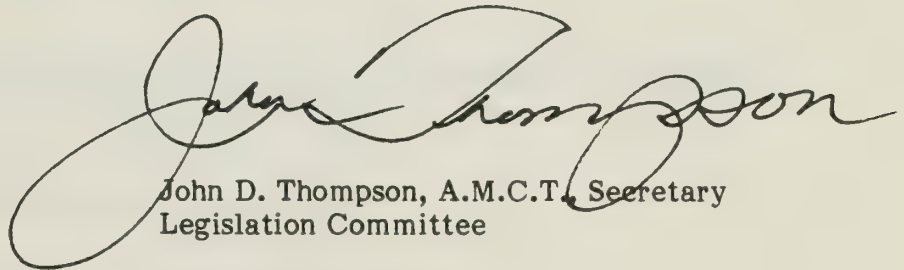 John Thompson
John D. Thompson, A.M.C.T., Secretary
Legislation Committee